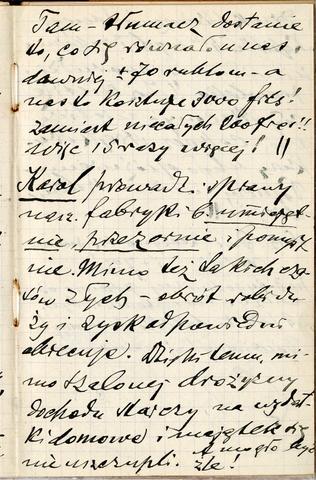 Tam - tłumacz dostanie
to, co się równało u nas
dawniej ± 70 rublom - a
nas to kosztuje 3000 frs!
zamiast niecałych 200 frs!!
Więc 15 razy więcej! !!
Karol prowadzi sprawy
nasz. fabryki b. umiejęt-
nie, przezornie i pomyśl-
nie. Mimo też takich cza-
sów złych - obrót robi du-
ży i zysk odpowiedni
obiecuje. Dzięki temu, mi-
mo szalonej drożyzny
dochodu starczy na wydat-
ki domowe i majątek się
nie uszczupli. A mogło być
źle!